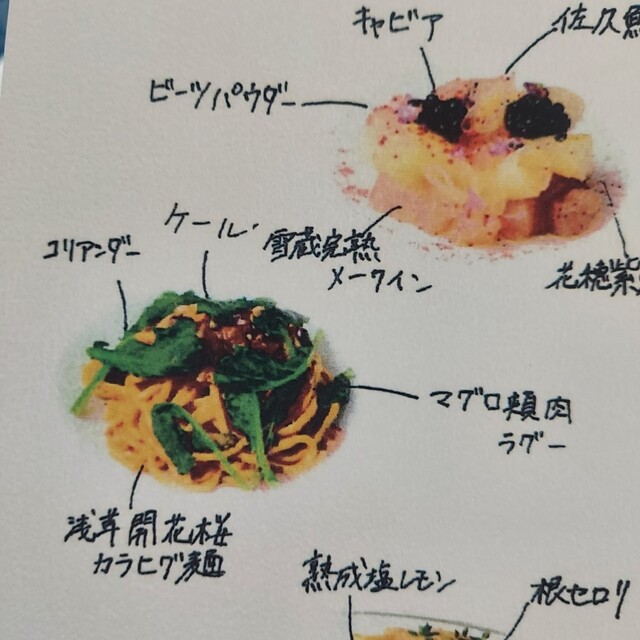 キャビア
佐久
ビーツパウダー
ケール
雪蔵完熟
メークイン
コリアンダー
花穂紫
マグロ頬肉
ラグー
浅草開花楼
カラヒグ麺
熟成塩レモン
根セロリ